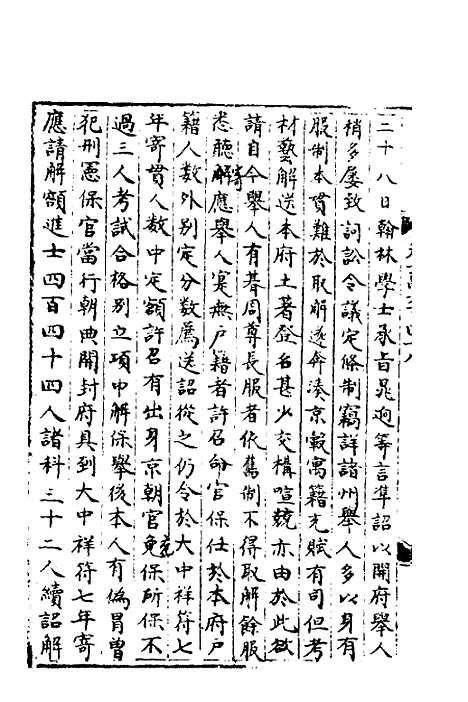 二十八日翰林學士承旨晁迥等言準詔以開府舉人
稍多屢致詞訟令議定條制竊詳諸州舉人多以身有
服制本貫難於取解遂奔湊京轂寓籍充賦有司但考
材藝解送本府土著登名甚少交構喧競亦由於此欲
請自今舉人有朞周尊長服者依舊制不得取解餘服
悉聽寄解應舉人實無戶籍者許召命官保任於本府戶
籍人數外別定分數薦送詔從之仍令於大中祥符七
年寄貫人數中定額許召有出身京朝官充保所保不
過三人考試合格別立項申解保舉後本人有偽冒曾
犯刑憲保官當行朝典開封府具到大中祥符七年寄
應請解額進士四百四十四人諸科三十二人續詔解